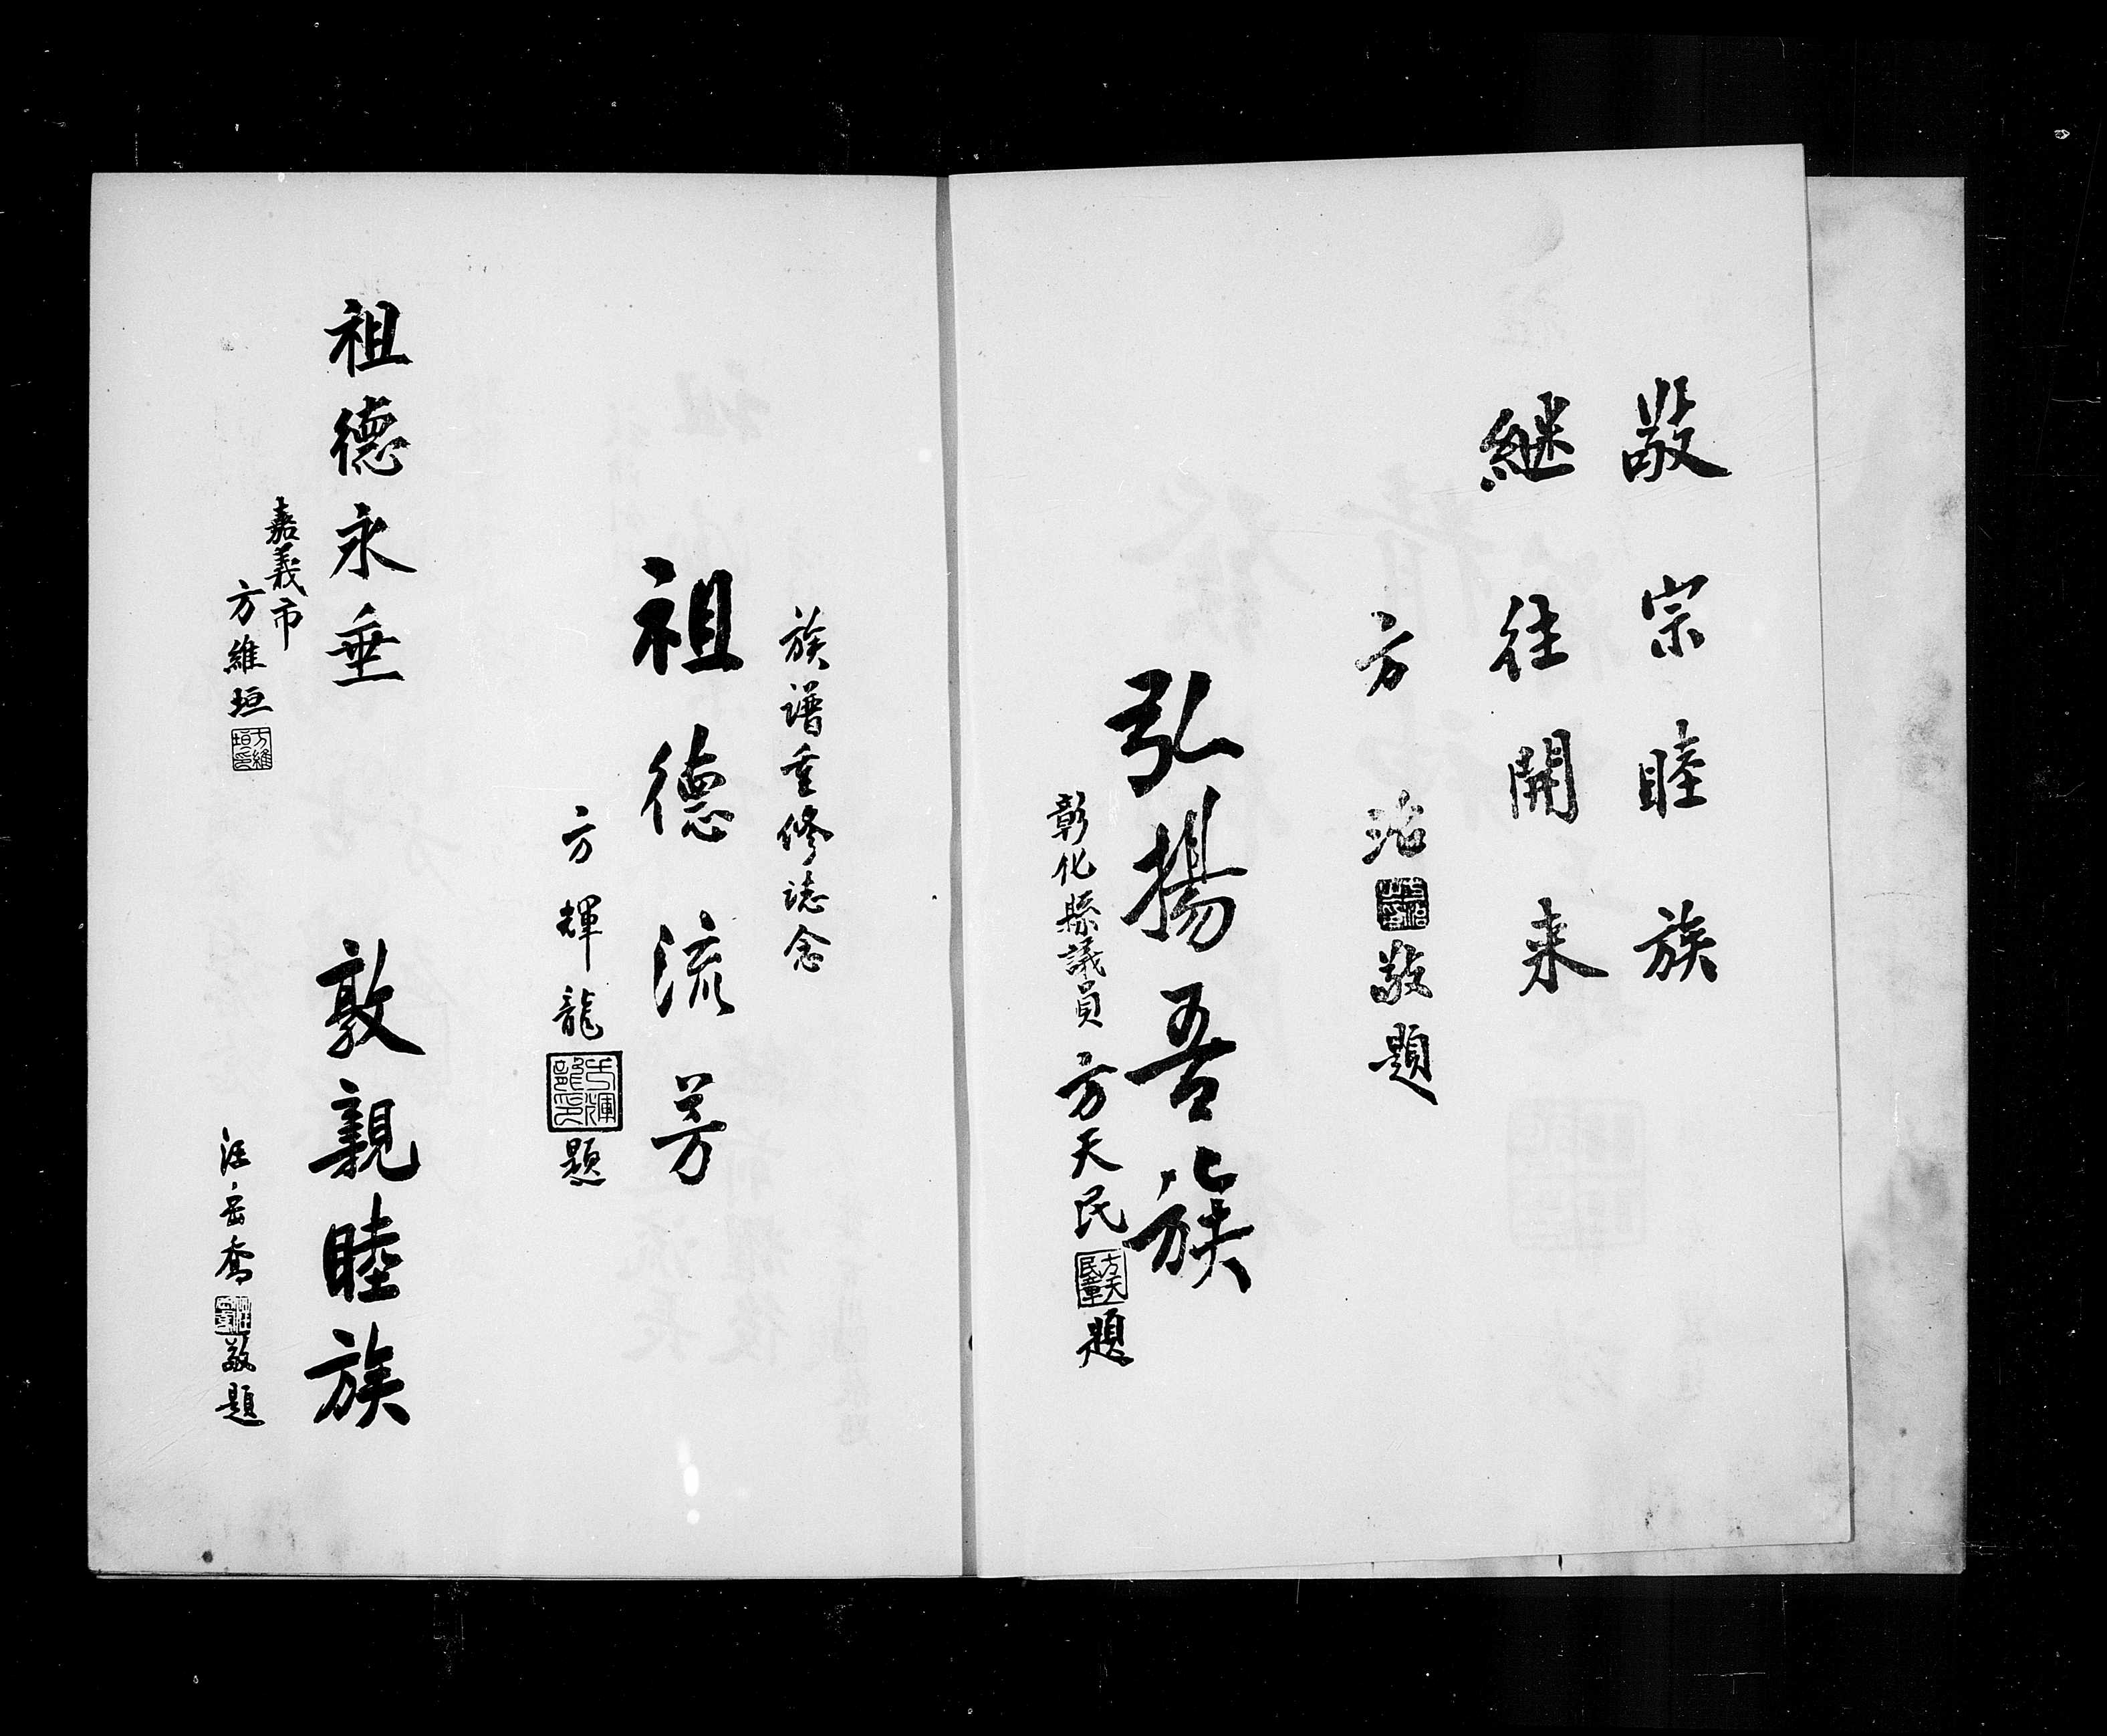 敬宗睦族
継往開来
方治敬題
弘揚吾族
彰化縣議員 方天民題
方天民章
族譜重修誌念
祖德流芳
方輝龍題
祖德永垂
嘉義市
方維垣
方維垣印
敦親睦族
汪岳喬敬題